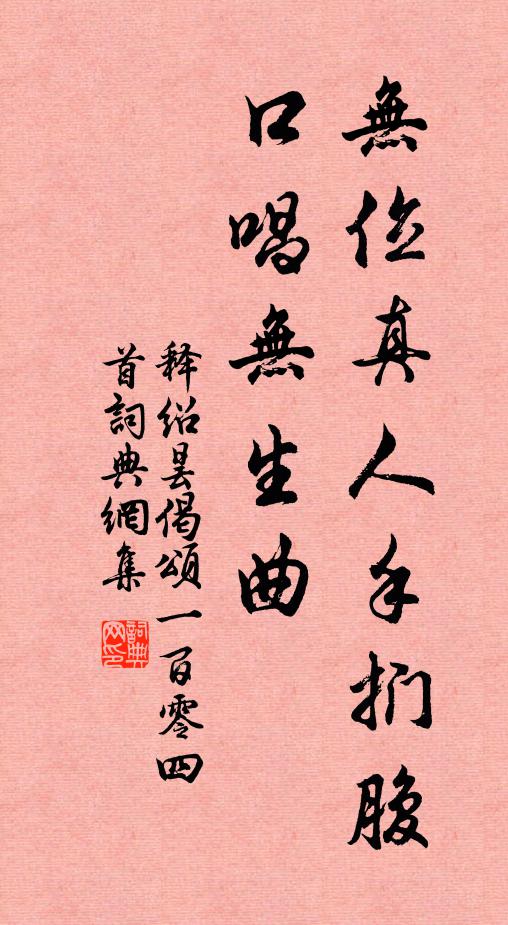 無位真人手捫腹
口唱無生曲
釋紹曇偈頌一百零四
首詞典網集
詞典
网印